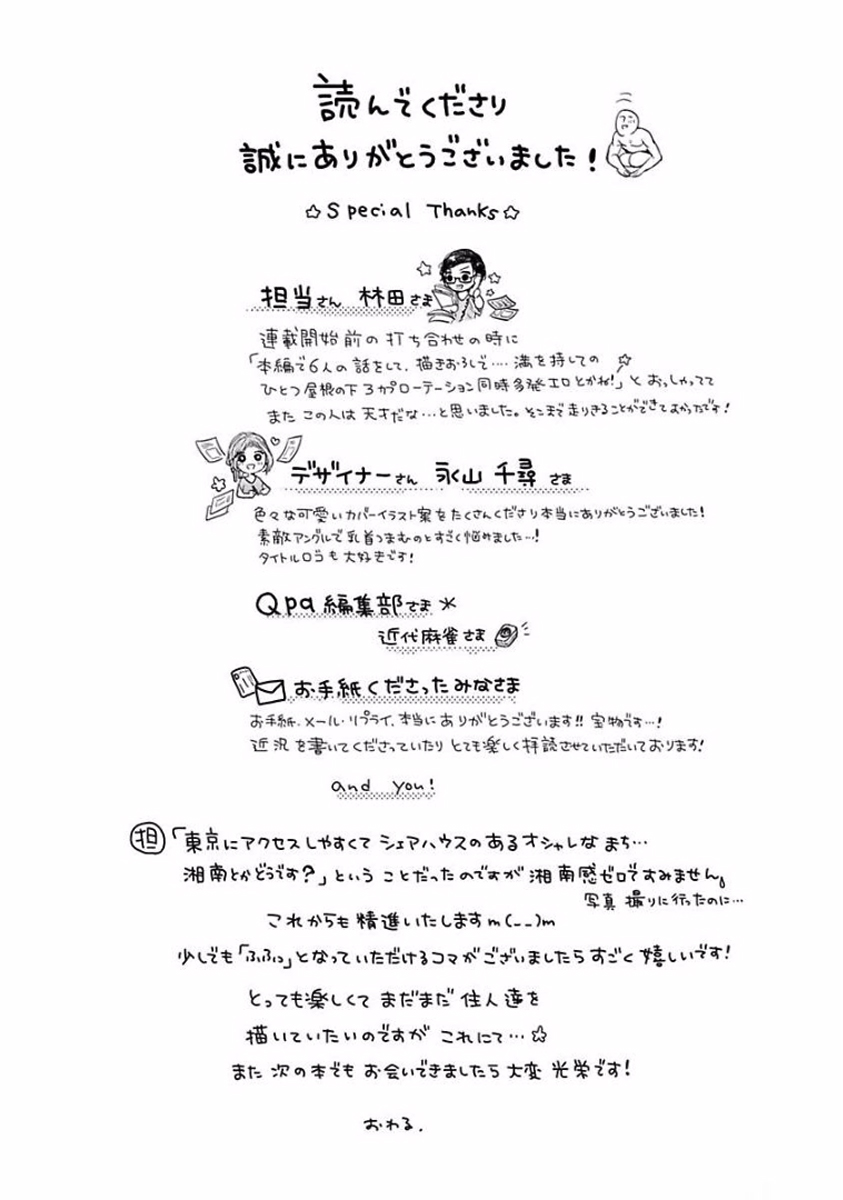 読んでくださり
誠にありがとうございました!
☆Special Thanks☆
担当さん 林田さま
連載開始前の打ち合わせの時に
「本編で6人の話をして、描きおろしで‥‥満を持しての
ひとつ屋根の下3カプローテーション同時多発エロとかね!」とおっしゃってて
またこの人は天才だな…と思いました。そこまで走りきることができてよかったです!
デザイナーさん 永山 千尋 さま
色々な可愛いカバーイラスト案をたくさんくださり本当にありがとうございました!
素敵アングルで乳首つまむのとすごく悩みました…!
タイトルロゴも大好きです!
Qpa編集部さま*
近代麻雀さま
お手紙くださったみなさま
お手紙、メール・リプライ、本当にありがとうございます!!宝物です…!
近況を書いてくださっていたりとても楽しく拝読させていただいております!
and you!
担「東京にアクセスしやすくてシェアハウスのあるオシャレなまち…
湘南とかどうです?」ということだったのですが湘南感ゼロですみません。
写真撮りに行ったのに…
これからも精進いたしますm(__)m
少しでも「ふふっ」となっていただけるコマがございましたらすごく嬉しいです!
とっても楽しくてまだまだ住人達を
描いていたいのですがこれにて…☆
また次の本でもお会いできましたら大変光栄です!
おわる.